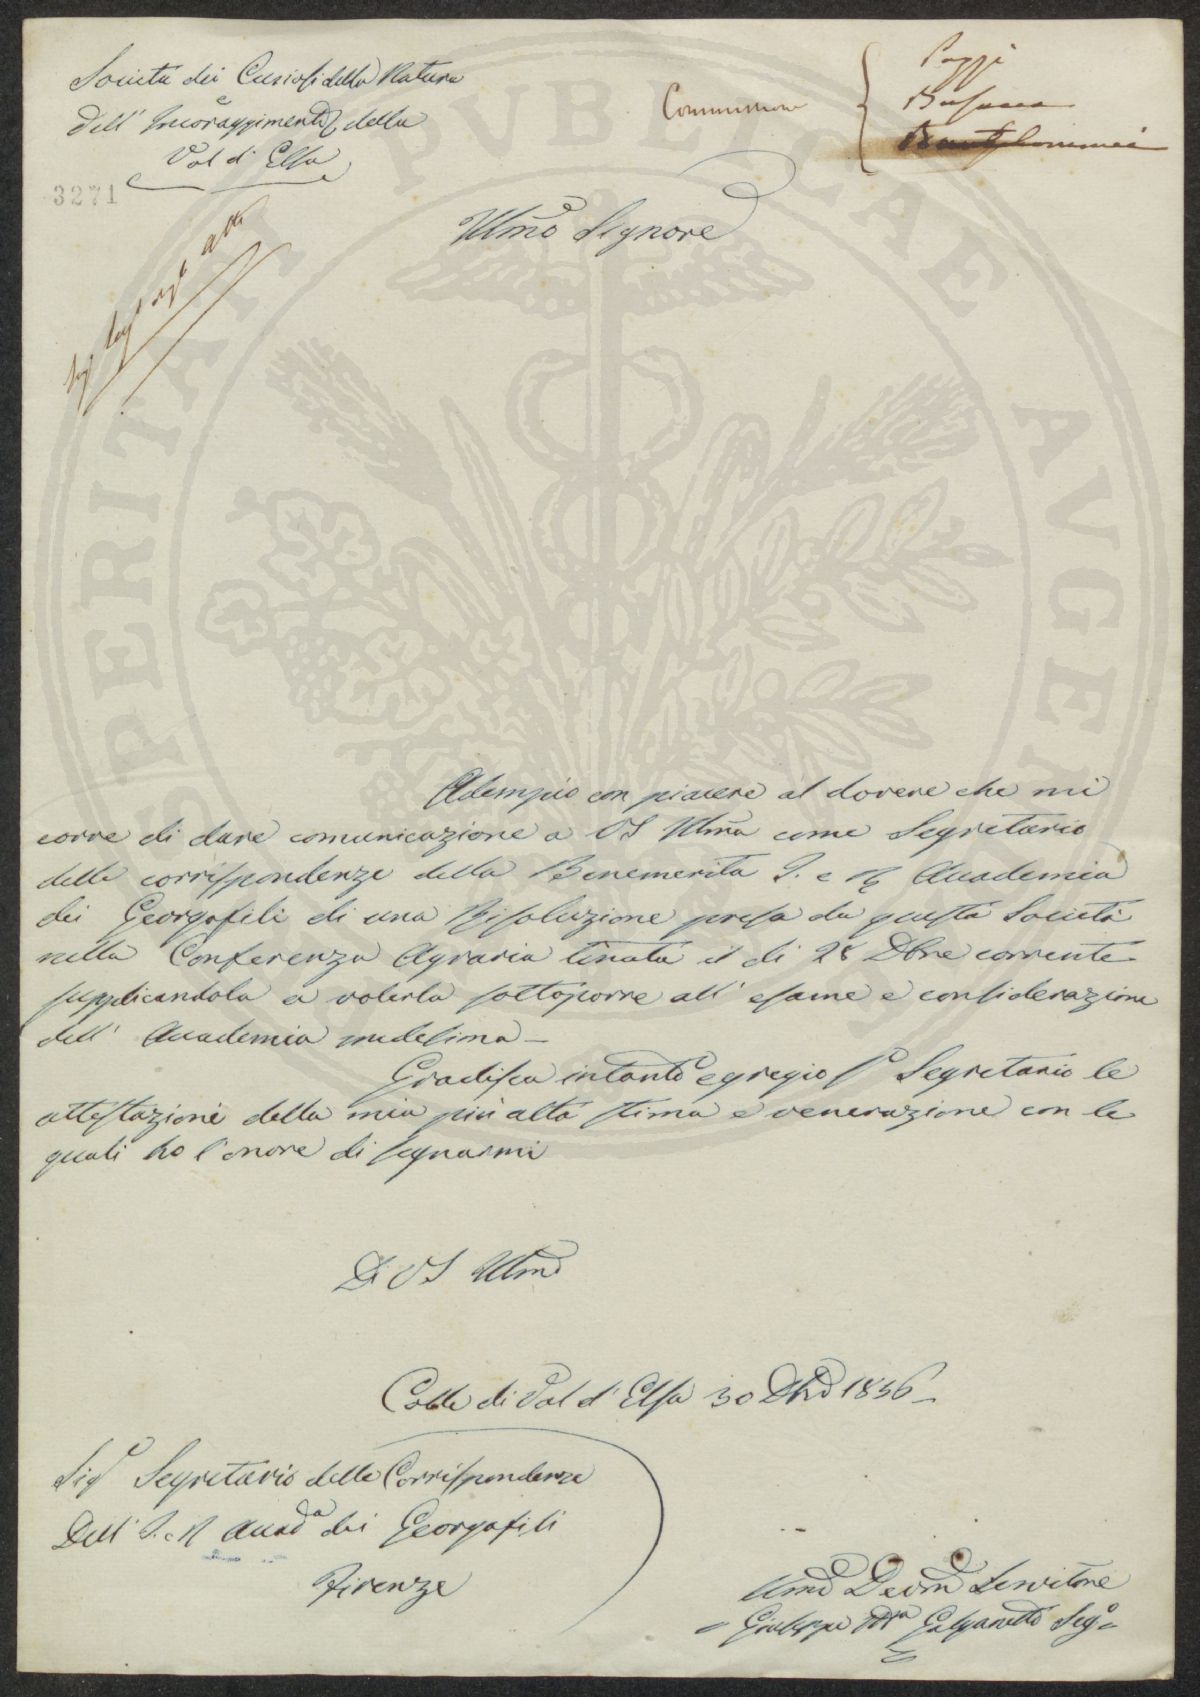 Società dei Curiosi della Natura
e
Dell' Incoraggimento della
Val di Elsa
3271
Commissione
Poggi
Busacca
Illmo Signore
Adempio con piacere al dovere che mi
corre di dare comunicazione a VS Illma come Segretario
delle corrispondenze della Benemerita I. e R. Accademia
dei Georgofili di una Risoluzione presa da questa Società
nella Conferenza Agraria tenuta il di 28 Dbre corrente
supplicandola a volerla sottoporre all' esame e considerazione
dell' Accademia medesima –
Gradisca intanto egregio Sr Segretario le
attestazioni della mia più alta stima e venerazione con le
quali ho l'onore di segnarmi
Di VS Illma
Colle di Val d' Elsa 30 Dbre 1836 –
Sigr Segretario delle Corrispondenze
Dell' I. e R Accada dei Georgofili
Firenze
Umo Devmo Servitore
Giuseppe Segrio
PERITATI PVBLICAE AVGEN